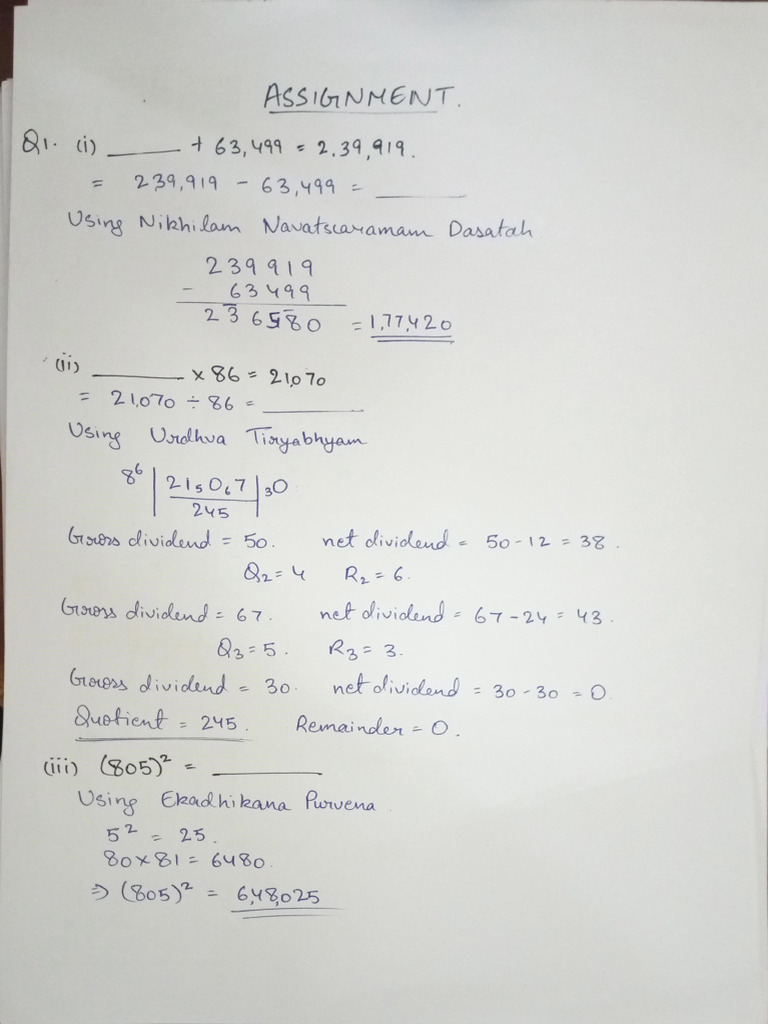 ASSIGNMENT.
Q1. (i) ______ + 63,499 = 2,39,919.
= 239,919 - 63,499 = ______
Using Nikhilam Navatscaramam Dasatah
239919
- 63499
2 3̅ 6 5̅ 8̅ 0 = 1,77,420
(ii) ______ x 86 = 21,070
= 21,070 ÷ 86 = ______
Using Urdhva Tiryabhyam
8⁶ | 21₅0₆7 | ₃0
245
Gross dividend = 50. net dividend = 50-12 = 38.
Q₂ = 4 R₂ = 6.
Gross dividend = 67. net dividend = 67-24 = 43.
Q₃ = 5. R₃ = 3.
Gross dividend = 30. net dividend = 30-30 = 0.
Quotient = 245. Remainder = 0.
(iii) (805)² = ______
Using Ekadhikana Purvena.
5² = 25.
80x81 = 6480.
⇒ (805)² = 6,48,025